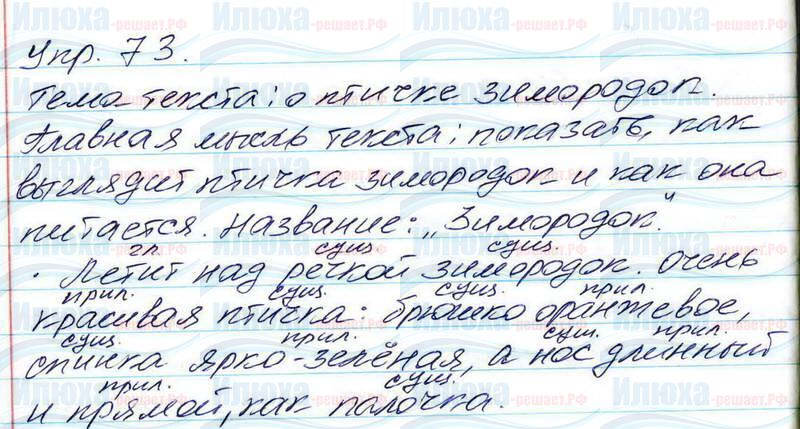 Упр. 73.
Тема текста: о птичке зимородок.
Главная мысль текста: показать, как
выглядит птичка зимородок и как она
питается. Название: „Зимородок“.
гл. сущ. сущ.
Летит над речкой зимородок. Очень
прил. сущ. сущ. прил.
красивая птичка: брюшко оранжевое,
сущ. прил. сущ. прил.
спинка ярко-зелёная, а нос длинный
прил. сущ.
и прямой, как палочка.